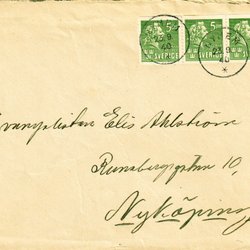 5 SVERIGE 5 SVERIGE
Evangelisten Elis Ahlström
Runebergsgatan 10,
Nyköping